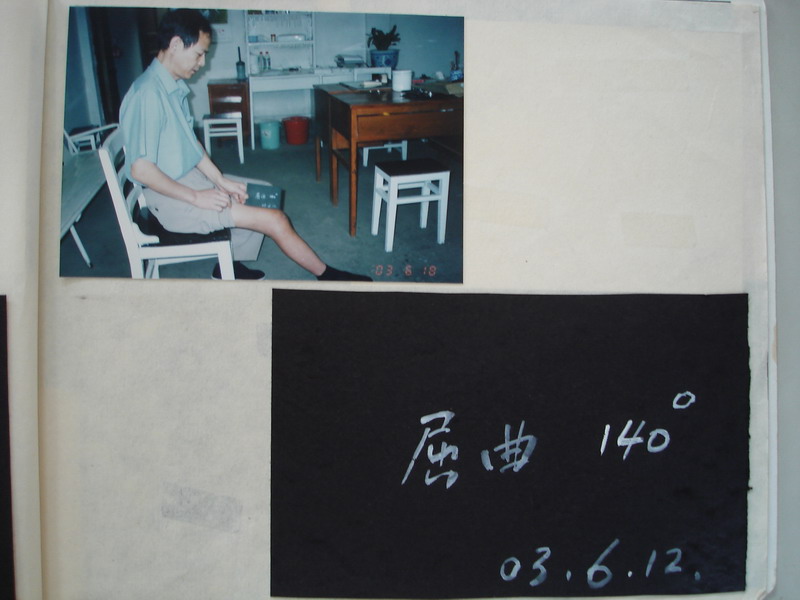 03 6 18
屈曲 140°
03.6.12.